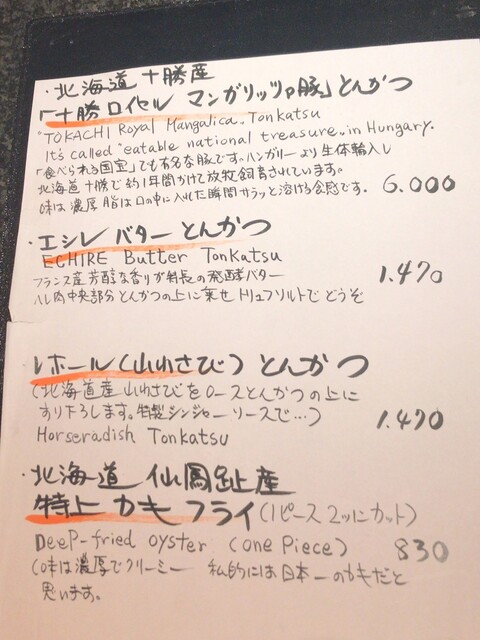 ・北海道十勝産
「十勝ロイヤル マンガリッツァ豚」とんかつ
"TOKACHI Royal Mangalica" Tonkatsu
It's called "eatable national treasure" in Hungary.
「食べられる国宝」でも有名な豚です。ハンガリーより生体輸入し
北海道十勝で約1年間かけて放牧飼育されています。
味は濃厚 脂は口の中に入れた瞬間サラッと溶ける食感です. 6.000
・エシレ バター とんかつ
ECHIRE Butter Tonkatsu
フランス産 芳醇な香りが特長の発酵バター 1.470
ヒレ肉中央部分とんかつの上に乗せ トリュフソルトで どうぞ
レホール(山わさび)とんかつ
(北海道産山わさびをロースとんかつの上に
すり下ろします。特製ジンジャーソースで…) 1.490
Horseradish Tonkatsu
・北海道 仙鳳趾産
特上 カキ フライ(1ピース 2ッにカット)
Deep-fried oyster (one Piece) 830
(味は濃厚でクリーミー 私的には日本一のカキだと
思います。